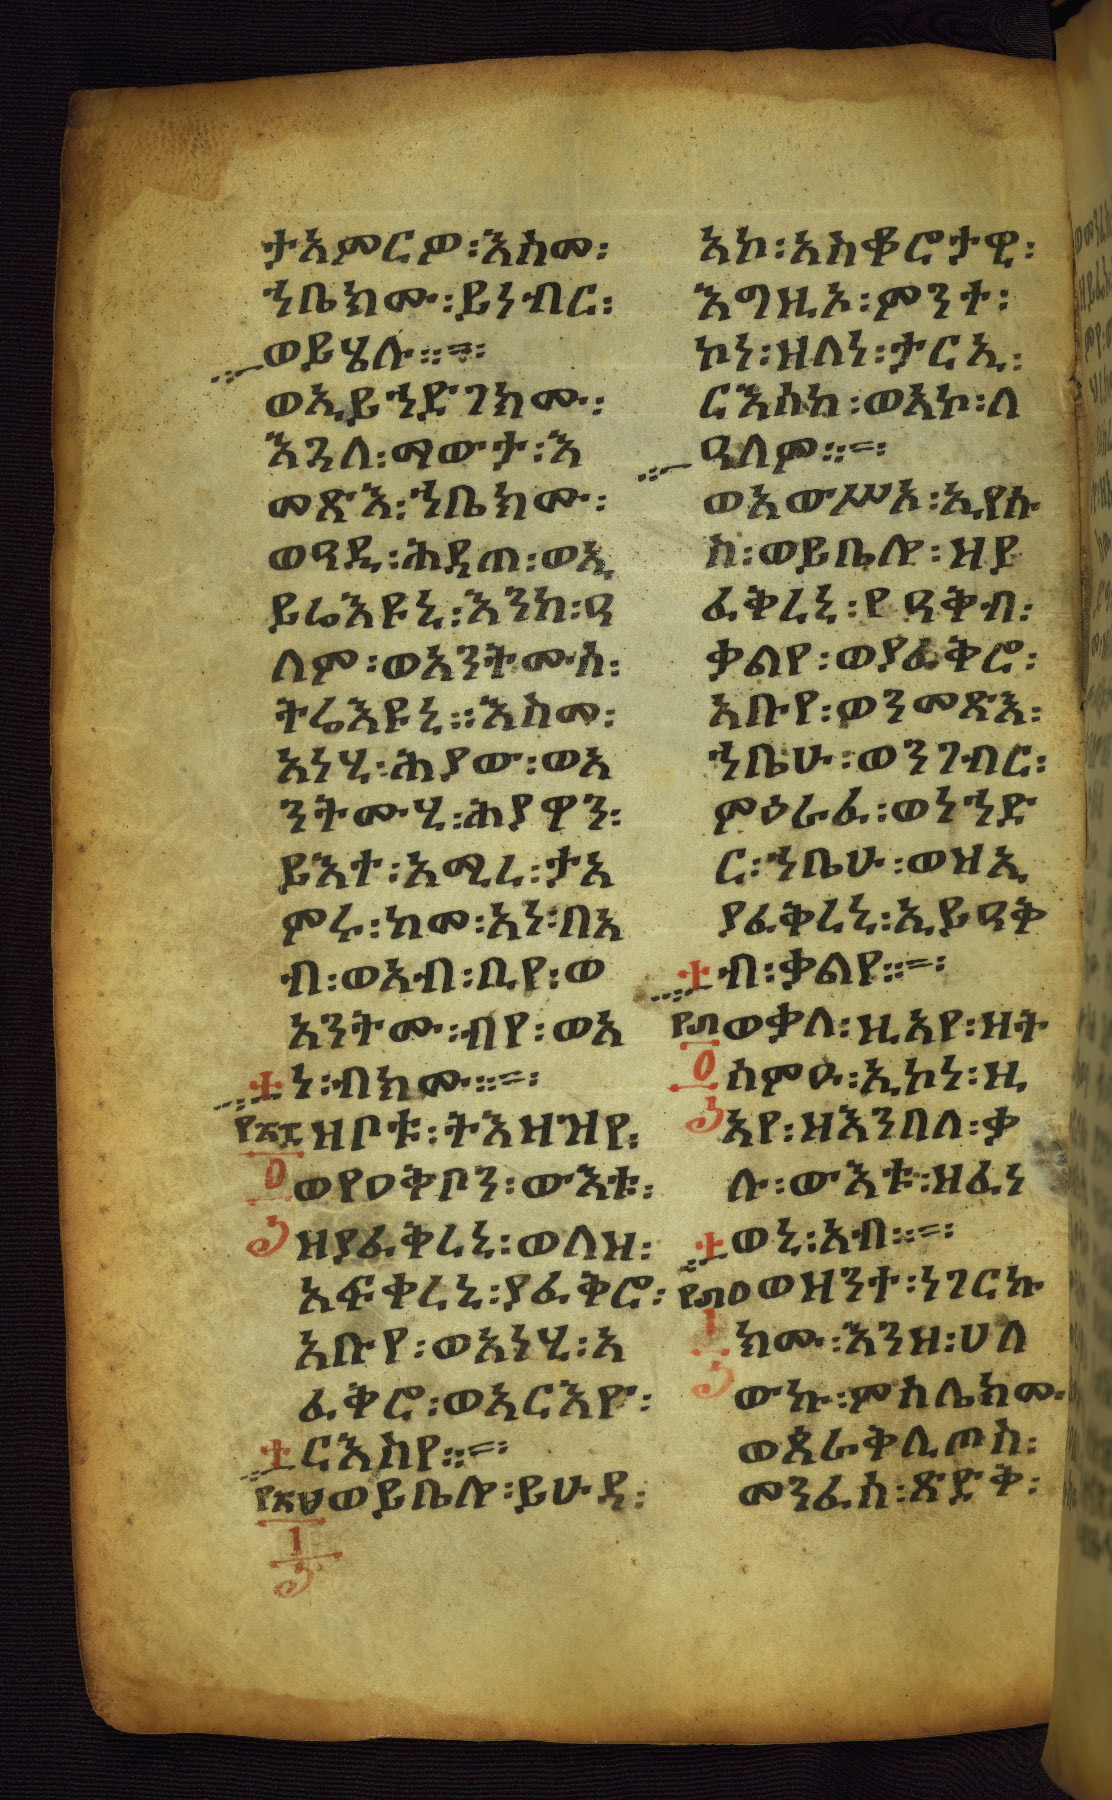 ታአምርዎ፡እስመ፡
ኀቤክሙ፡ይነብር፡
ወይሄሉ።=፡
ወኢይኀድገክሙ፡
እጓለ፡ማውታ፡እ
መጽእ፡ኀቤክሙ፡
ወዓዲ፡ሕዳጠ፡ወኢ
ይሬእዩኒ፡እንከ፡ዓ
ለም፡ወአንትሙሰ፡
ትሬእዩኒ።እስመ፡
አነሂ፡ሕያው፡ወአ
ንትሙሂ፡ሕያዋን፡
ይእተ፡አሚረ፡ታአ
ምሩ፡ከመ፡አነ፡በአ
ብ፡ወአብ፡ቢየ፡ወ
አንትሙ፡ብየ፡ወአ
ነ፡ብክሙ።=፡
ዘቦቱ፡ትእዛዝየ፡
ወየዐቅቦን፡ውእቱ፡
ዘያፈቅረኒ፡ወለዘ፡
አፍቀረኒ፡ያፈቅሮ፡
አቡየ፡ወአነሂ፡አ
ፈቅሮ፡ወአርእዮ፡
ርእስየ።=፡
ወይቤሎ፡ይሁዳ፡
አኮ፡አስቆሮታዊ፡
እግዚኦ፡ምንተ፡
ኮነ፡ዘለነ፡ታርኢ፡
ርእሰከ፡ወአኮ፡ለ
ዓለም።=፡
ወአውሥአ፡ኢየሱ
ስ፡ወይቤሎ፡ዘያ
ፈቅረኒ፡የዓቅብ፡
ቃልየ፡ወያፈቅሮ፡
አቡየ፡ወንመጽእ፡
ኀቤሁ፡ወንገብር፡
ምዕራፈ፡ወነኀድ
ር፡ኀቤሁ፡ወዘኢ
ያፈቅረኒ፡ኢይዓቅ
ብ፡ቃልየ።=፡
ወቃለ፡ዚአየ፡ዘት
ሰምዑ፡ኢኮነ፡ዚ
አየ፡ዘእንበለ፡ቃ
ሉ፡ውእቱ፡ዘፈነ
ወኒ፡አብ።=፡
ወዘንተ፡ነገርኩ
ክሙ፡እንዘ፡ሀለ
ውኩ፡ምስሌክሙ
ወጰራቅሊጦስ፡
መንፈሰ፡ጽድቅ፡